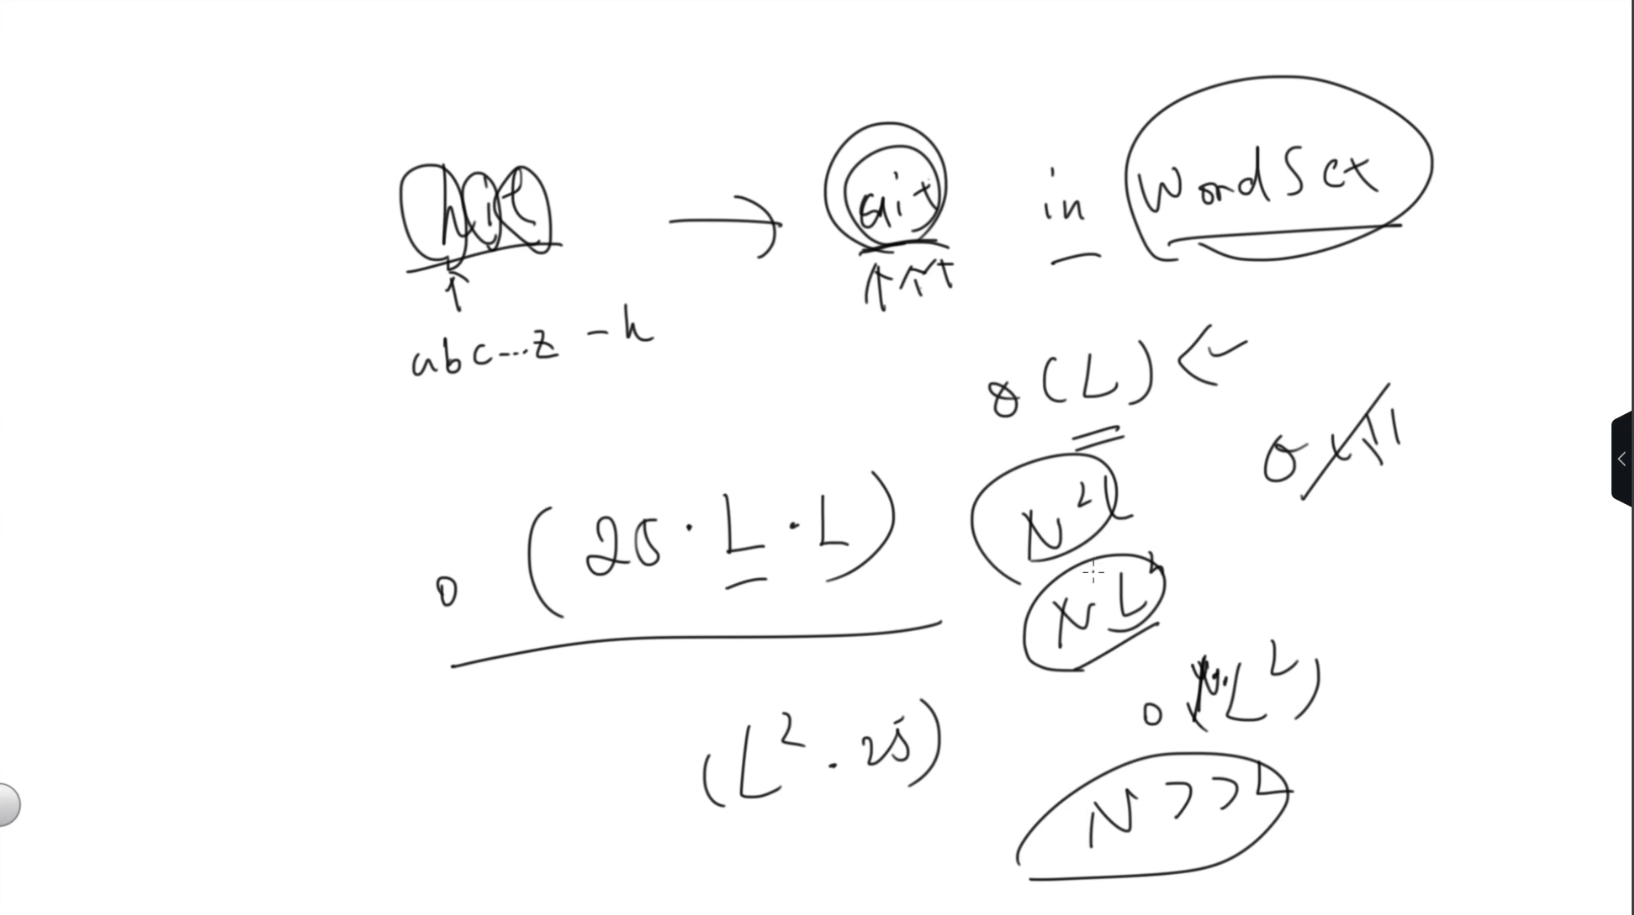 hit → ait in WordSet
abc...z - h
O(L) ←
O(1)
O(25 · L · L)
N²L
NL²
O(N·L²)
(L² · 25)
N >> L